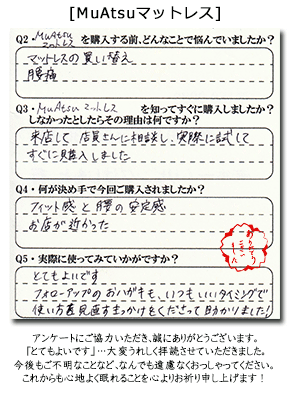 [MuAtsuマットレス]
Q2・MuAtsuマットレスを購入する前、どんなことで悩んでいましたか?
マットレスの買い替え
腰痛
Q3・MuAtsuマットレスを知ってすぐに購入しましたか?
しなかったとしたらその理由は何ですか?
来店して店員さんに相談し、実際に試して
すぐに購入しました
Q4・何が決め手で今回ご購入されましたか?
フィット感と腰の安定感
お店が近かった
Q5・実際に使ってみていかがですか?
とてもよいです
フォローアップのおハガキも、いつもいいタイミングで
使い方見直すきっかけをくださって助かりました!
アンケートにご協力いただき、誠にありがとうございます。
「とてもよいです」…大変うれしく拝読させていただきました。
今後もご不明なことなど、なんでも遠慮なくおっしゃってください。
これからも心地よく眠れることを心よりお祈り申し上げます!